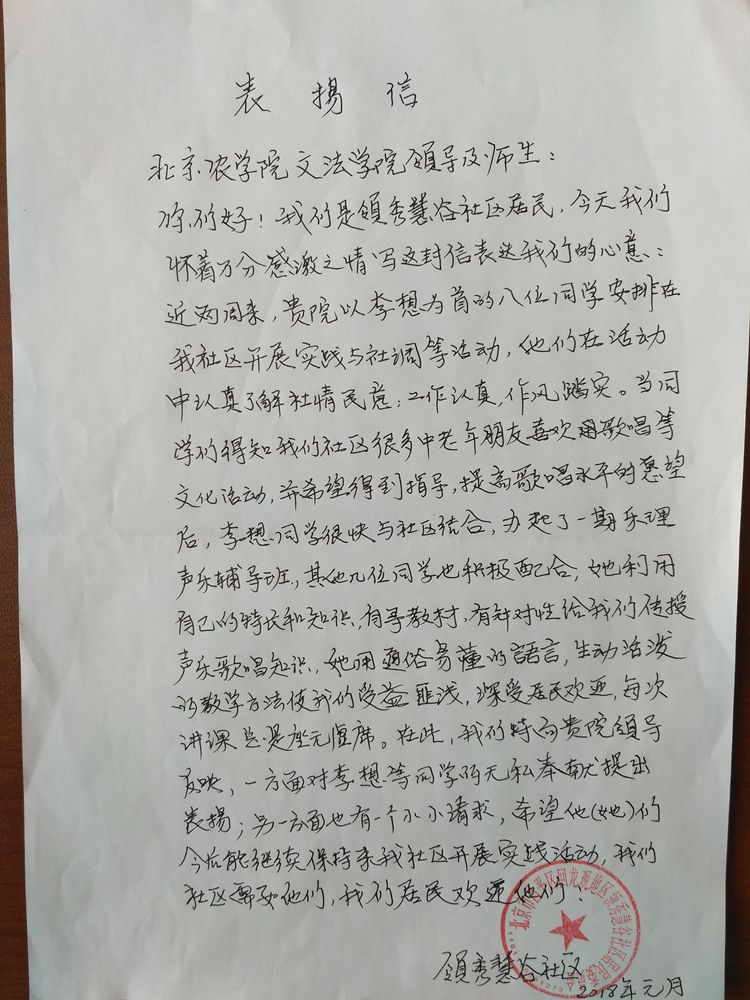 表揚信
北京农学院文法学院領导及师生：
你们好！我们是領秀慧谷社区居民，今天我们
怀着万分感激之情写这封信表达我们的心意：
近两周来，贵院以李想为首的八位同学安排在
我社区开展实践与社调等活动，他们在活动
中认真了解社情民意；工作认真，作风踏实。当同
学们得知我们社区很多中老年朋友喜欢歌唱等
文化活动，并希望得到指导，提高歌唱水平的愿望
后，李想同学很快与社区结合，办起了一期乐理
声乐辅导班，其他几位同学也积极配合；她利用
自己的特长和知识，自哥教材，有针对性给我们传授
声乐歌唱知识，她用通俗易懂的語言，生动活泼
的教学方法使我们受益匪浅，深受居民欢迎，每次
讲课总是座无虚席。在此，我们特向贵院領导
反映，一方面对李想等同学的无私奉献提出
表揚；另一方面也有一个小小请求，希望他(她)们
今后能继续保持来我社区开展实践活动，我们
社区需要他们，我们居民欢迎他们！
領秀慧谷社区
2018年元月
北京市昌平区回龙观地区领秀慧谷社区居民委员会